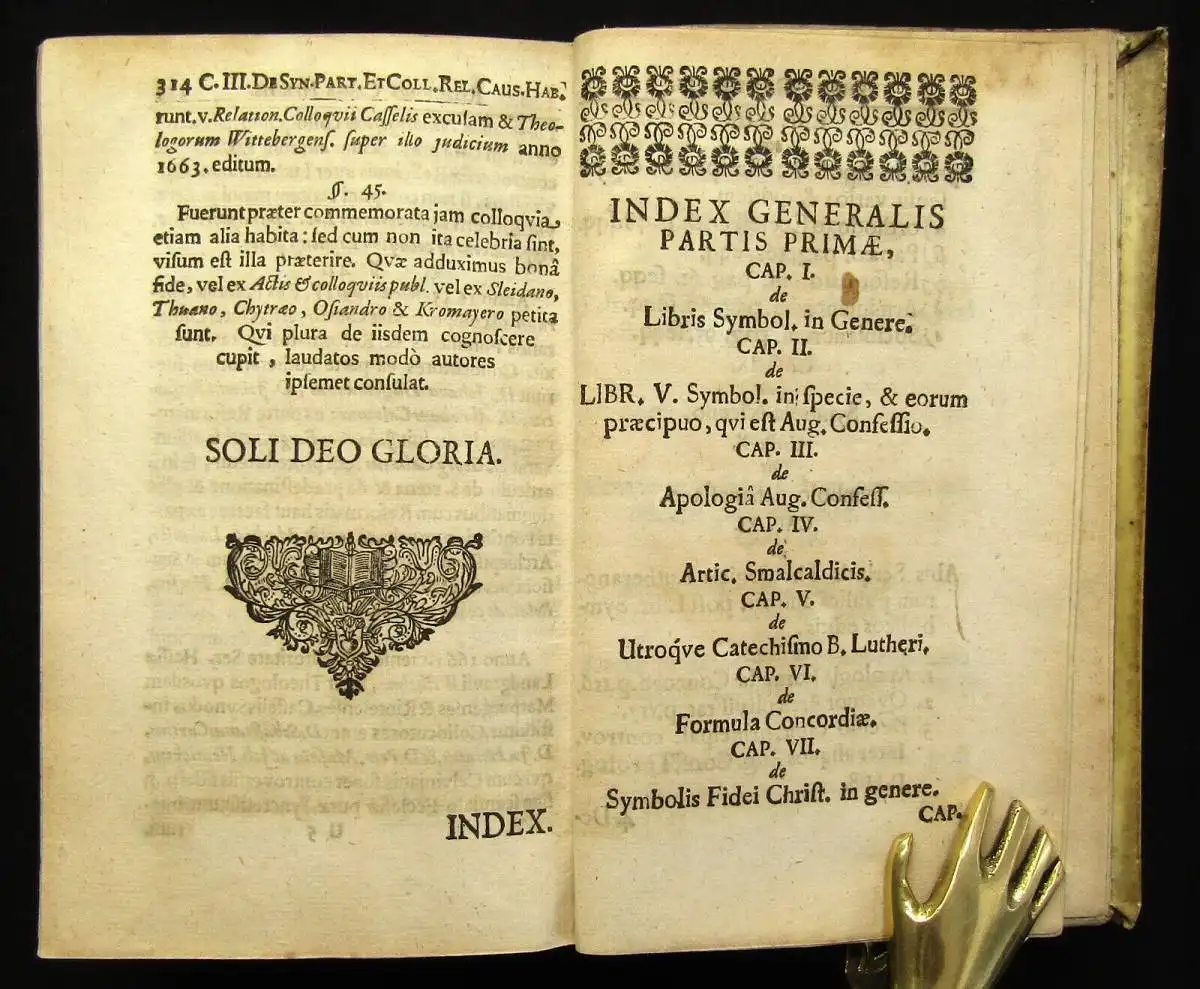 314 C. III. DE SYN. PART. ET COLL. REL. CAUS. HAB.
runt. v. Relation. Colloqvii Caſſelis excuſam & Theo-
logorum Wittebergenſ. ſuper illo judicium anno
1663. editum.
§. 45.
Fuerunt præter commemorata jam colloqvia,
etiam alia habita: ſed cum non ita celebria ſint,
viſum eſt illa præterire. Qvæ adduximus bonâ
fide, vel ex Actis & colloqviis publ. vel ex Sleidano,
Thuano, Chytræo, Oſiandro & Kromayero petita
ſunt. Qvi plura de iisdem cognoſcere
cupit, laudatos modò autores
ipſemet conſulat.
SOLI DEO GLORIA.
INDEX.
INDEX GENERALIS
PARTIS PRIMÆ,
CAP. I.
de
Libris Symbol. in Genere.
CAP. II.
de
LIBR. V. Symbol. in ſpecie, & eorum
præcipuo, qvi eſt Aug. Confeſſio.
CAP. III.
de
Apologiâ Aug. Confeſſ.
CAP. IV.
de
Artic. Smalcaldicis.
CAP. V.
de
Utroq́ve Catechiſmo B. Lutheri.
CAP. VI.
de
Formula Concordiæ.
CAP. VII.
de
Symbolis Fidei Chriſt. in genere.
CAP.